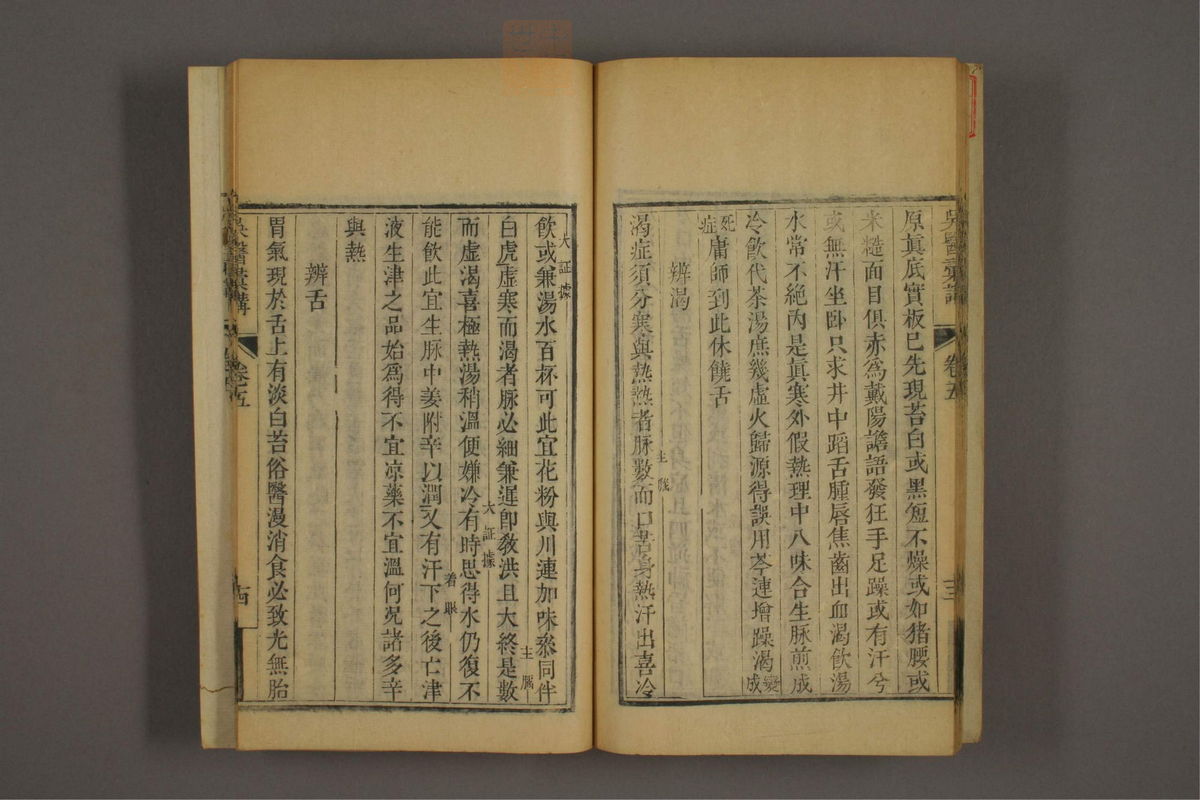 吳醫彙講
卷五
三
原真底實板已先現苔白或黑短不燥或如猪腰或
米糙面目俱赤爲戴陽譫語發狂手足躁或有汗兮
或無汗坐卧只求井中蹈舌腫唇焦齒出血渴飲湯
水常不絶內是眞寒外假熱理中八味合生脉煎成
冷飲代茶湯庶幾虛火歸源得誤用芩連增躁渴變成
死症庸師到此休饒舌
辨渴
渴症須分寒與熱熱者脉數而口苦身熱汗出喜冷
主腦
大証據
飲或兼湯水百杯可此宜花粉與川連加味叅同伴
主腦
白虎虛寒而渴者脉必細兼遲卽敎洪且大終是數
大証據
而虛渴喜極熱湯稍溫便嫌冷有時思得水仍復不
着眼
能飲此宜生脉中姜附辛以潤又有汗下之後亡津
液生津之品始爲得不宜凉藥不宜溫何况諸多辛
與熱
辨舌
胃氣現於舌上有淡白苔俗醫漫消食必致光無胎
吳醫彙講
卷五
四